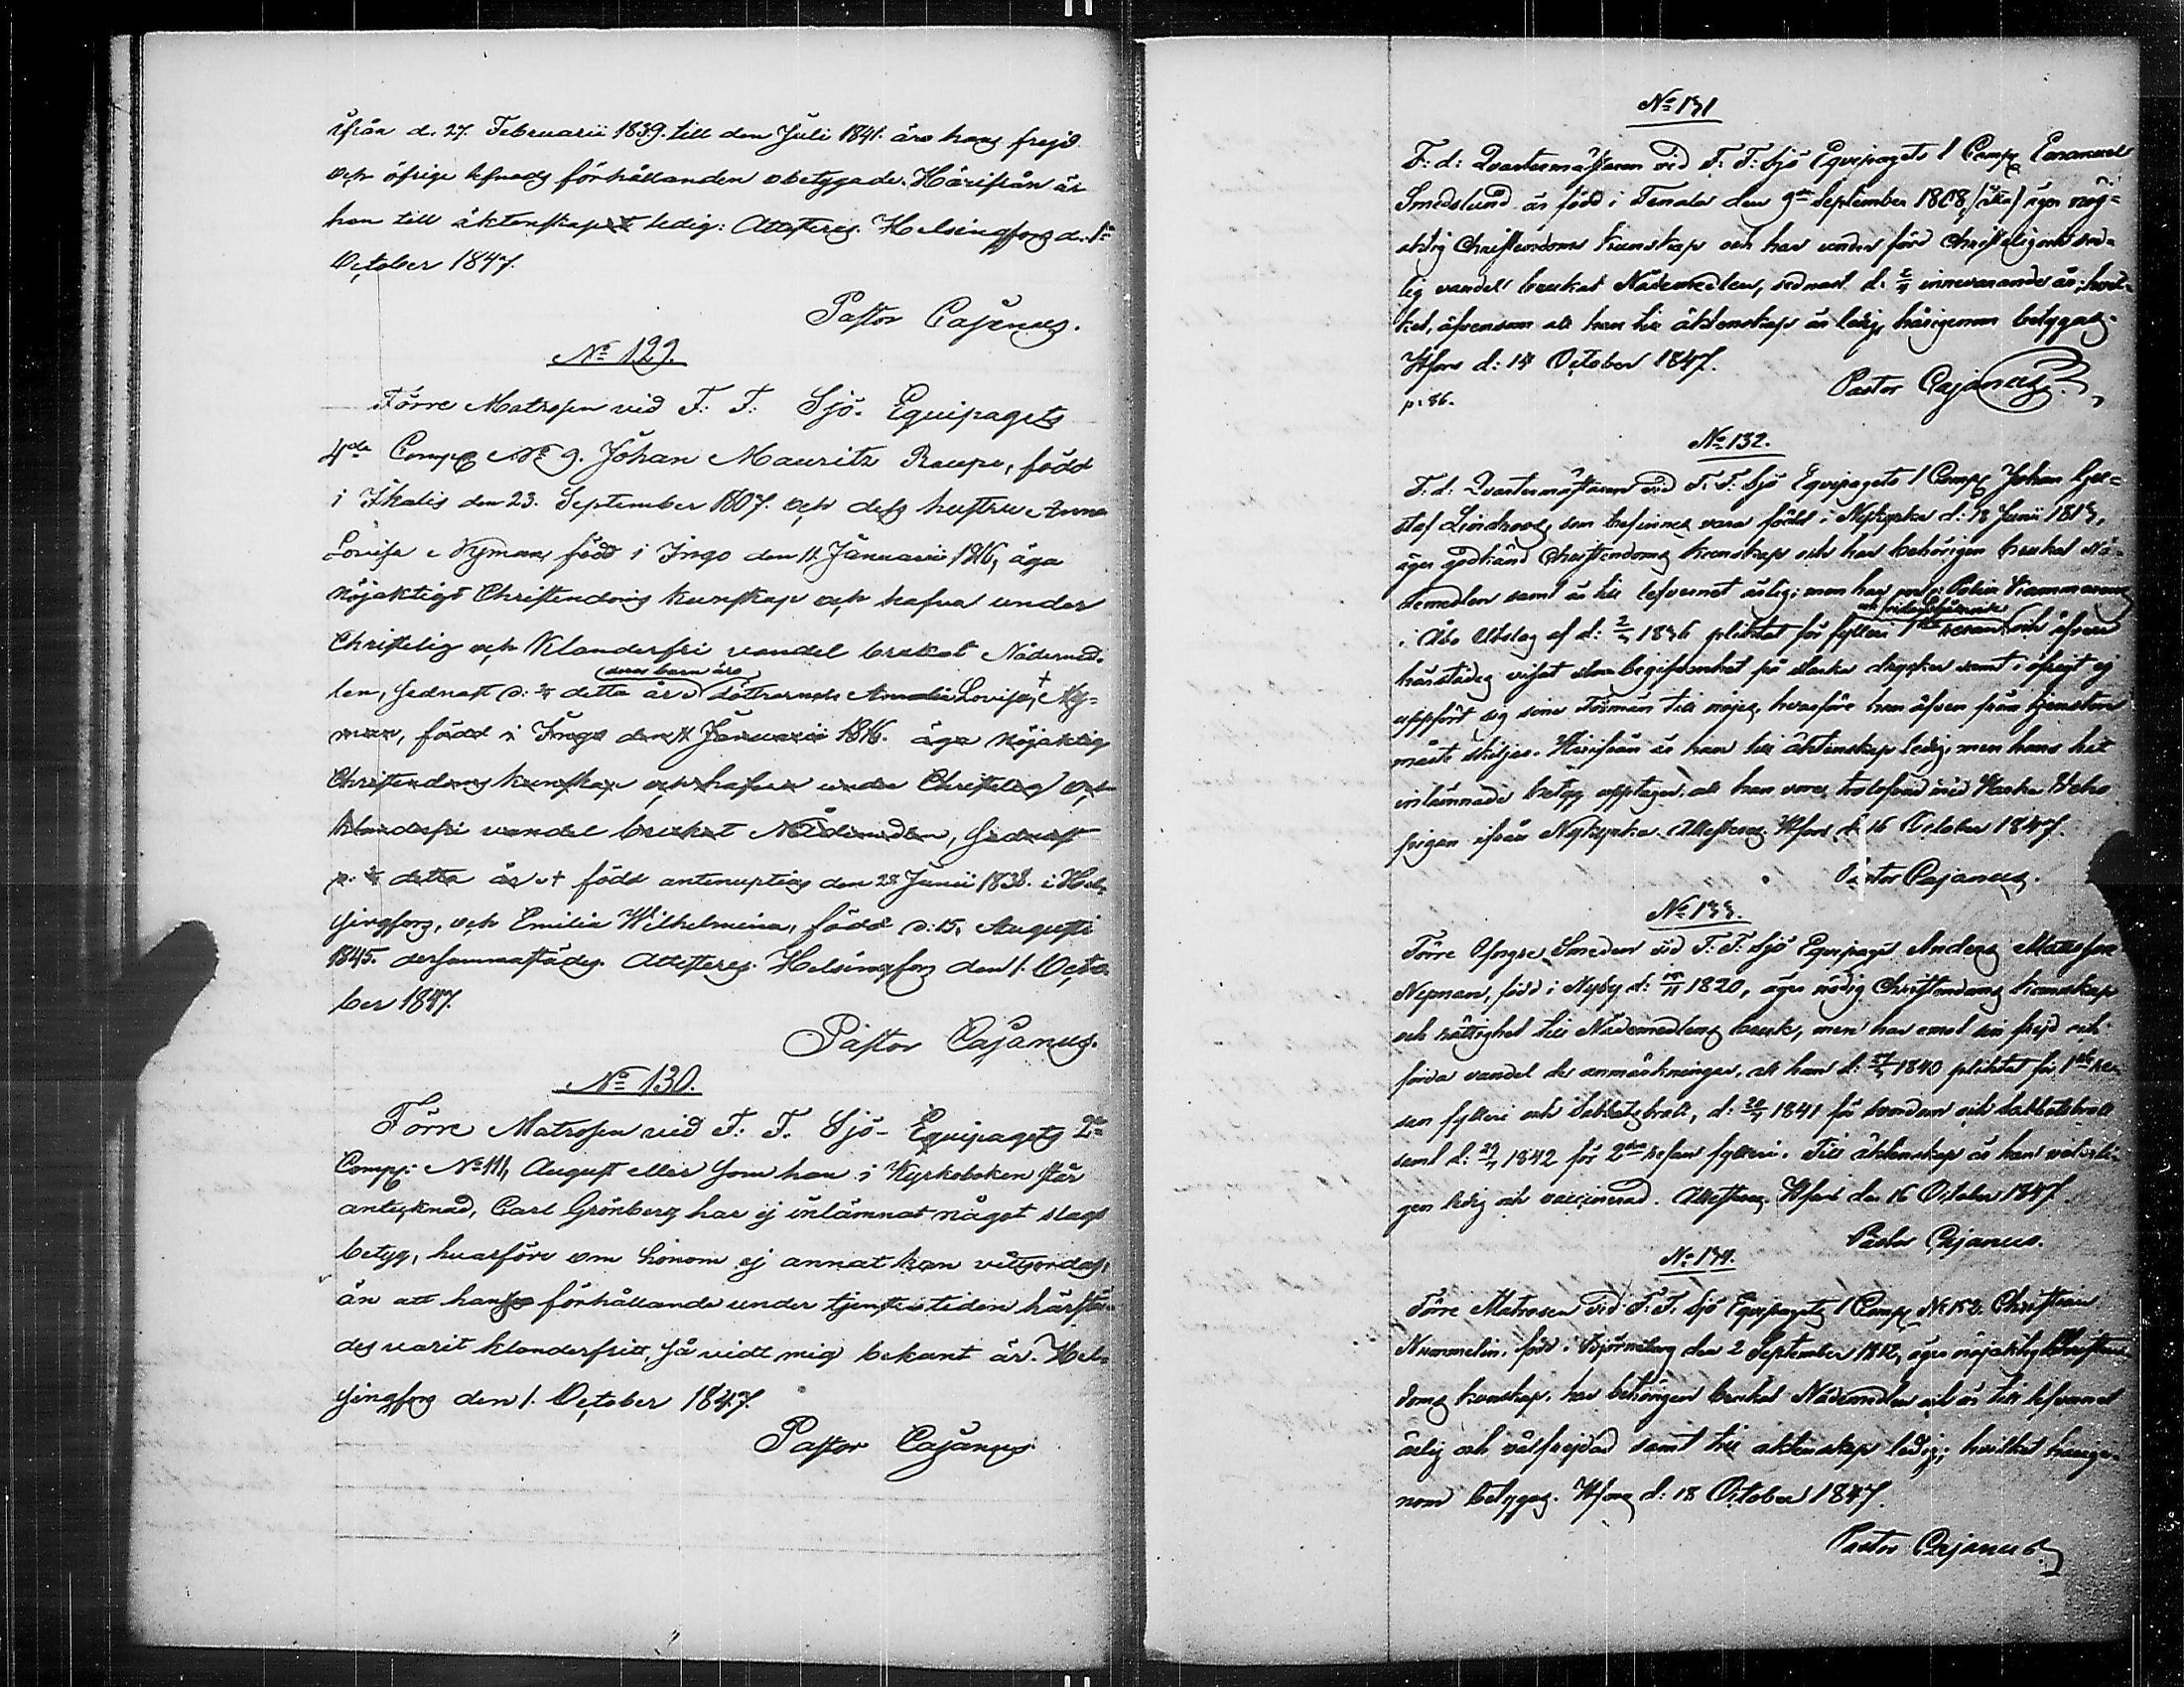 ifrån d. 27. Februarii 1839. till den Juli 1841. äro hans frejd
och öfrige lefnads förhållanden obetygade. Härifrån är
han till äktenskapet ledig: Attesteras. Helsingfors d. 1a
October 1847.
Pastor Cajanus.
No 129.
Förre Matrosen vid F: F: Sjö-Equipagets
4de Comp No 9. Johan Mauritz Raupe, född
i Ikalis den 23. September 1807. och dess hustru Anna
Lovisa Nyman, född i Ingo den 11 Januarii 1816, äga
nöjaktigt Christendoms kunskap och hafva under
Christelig och Klanderfri vandel brukat Nådemed-
len, sednast d: detta år
deras barn äro
döttrarnes Amalia Lovisa, Ny-
man, född i Ingo den 11 Januarii 1816. äga nöjaktig
Christendoms kunskap och hafva under Christelig och
klanderfri vandel brukat Nådemedlen, sednast
detta år född antenuptias den 28 Junii 1838. i Hel-
singfors, och Emilia Wilhelmina, född d: 15. Augusti
1845. dersammastädes. Attesteras. Helsingfors den 1. Octo-
ber 1847.
Pastor Cajanus.
No 130.
Förre Matrosen vid F: F. Sjö-Equipagets 2a
Comp: No 111, August eller som han i Kyrkoboken står
antecknad, Carl Grönberg har ej inlämnat något slags
betyg, hvarföre om honom ej annat kan vittsordas,
än att hans förhållande under tjenstetiden härstä-
des varit klanderfritt, så vidt mig bekant är. Hel-
singfors den 1. October 1847.
Pastor Cajanus
No 131
F: d: Qvartermästaren vid F: F: Sjö Equipagets 1 Comp Emanuel
Smedslund är född i Tenala den 9de September 1808, äger nöj-
aktig Christendoms kunskap och har under förd Christelig och sed-
lig vandel brukat Nådemedlen, sednast d: innevarande år; hvil-
ket, äfvensom att han till äktenskap är ledig, härigenom betygas.
Hfors d: 14 October 1847.
Pastor Cajanus
p: 86.
No 132.
F: d: Qvartermästaren vid F. F. Sjö Equipagets 1 Comp Johan Gu-
staf Lindroos, som befinnes vara född i Nykyrka d: 18 Junii 1813,
äger godkänd Christendoms kunskap och har behörigen brukat Nå-
demedlen samt är till lefvernet ärlig; men har Kammarens
i Åbo Utslag af d: 1836 pliktat för fylleri 1sta resan och äfven
härstädes visat begifvenhet på starka drycker samt i öfrigt ej
uppfört sig sine Förmän till nöjes, hvarföre han äfven från tjensten
måste skiljas. Härifrån är han till äktenskap ledig, men hans hit
inlämnade betyg upptager, att han vore trolofvad med
pigan ifrån Nykyrka. Attesteras. Hfors d. 16 October 1847.
Pastor Cajanus.
No 133.
Förre Smeden vid F. F. Sjö Equipaget Anders Mattsson
Nepman, född i Nyby d: 1820, äger nödig Christendoms kunskap
och rättighet till Nådemedlens bruk, men har emot sin frejd och
förda vandel de anmärkningar, att han d: 1840 pliktat för 1sta re-
san fylleri och Sabbatsbrott, d: 1841 för svordom och Sabbatsbrott
samt d: 1842 för 2dra resan fylleri. Till äktenskap är han veterli-
gen ledig och vaccinerad. Attesteras. Hfors den 16 October 1847.
Pastor Cajanus.
No 134.
Förre Matrosen vid F. F. Sjö Equipagets 1 Comp No 152 Christian
Nummelin, född i Björneborg den 2 September 1812, äger nöjaktig Christen-
doms kunskap, har behörigen brukat Nådemedlen och är till lefvernet
ärlig och välfrejdad samt till äktenskap ledig; hvilket härige-
nom betygas. Hfors d: 18 October 1847.
Pastor Cajanus